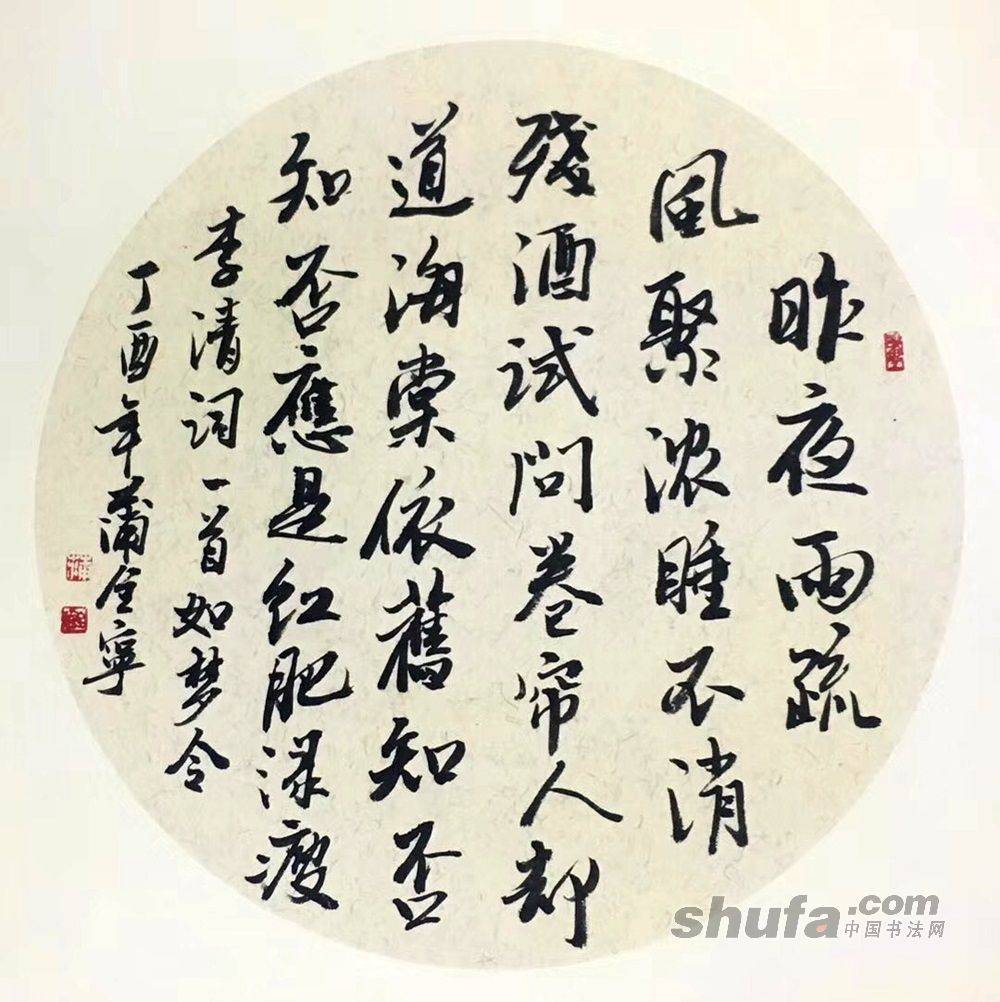 昨夜雨疏
風聚浓睡不消
殘酒试問卷帘人却
道海棠依舊知否
知否應是红肥渌瘦
李清词一首如梦令
丁酉年蒲全寧
shufa.com
中国书法网